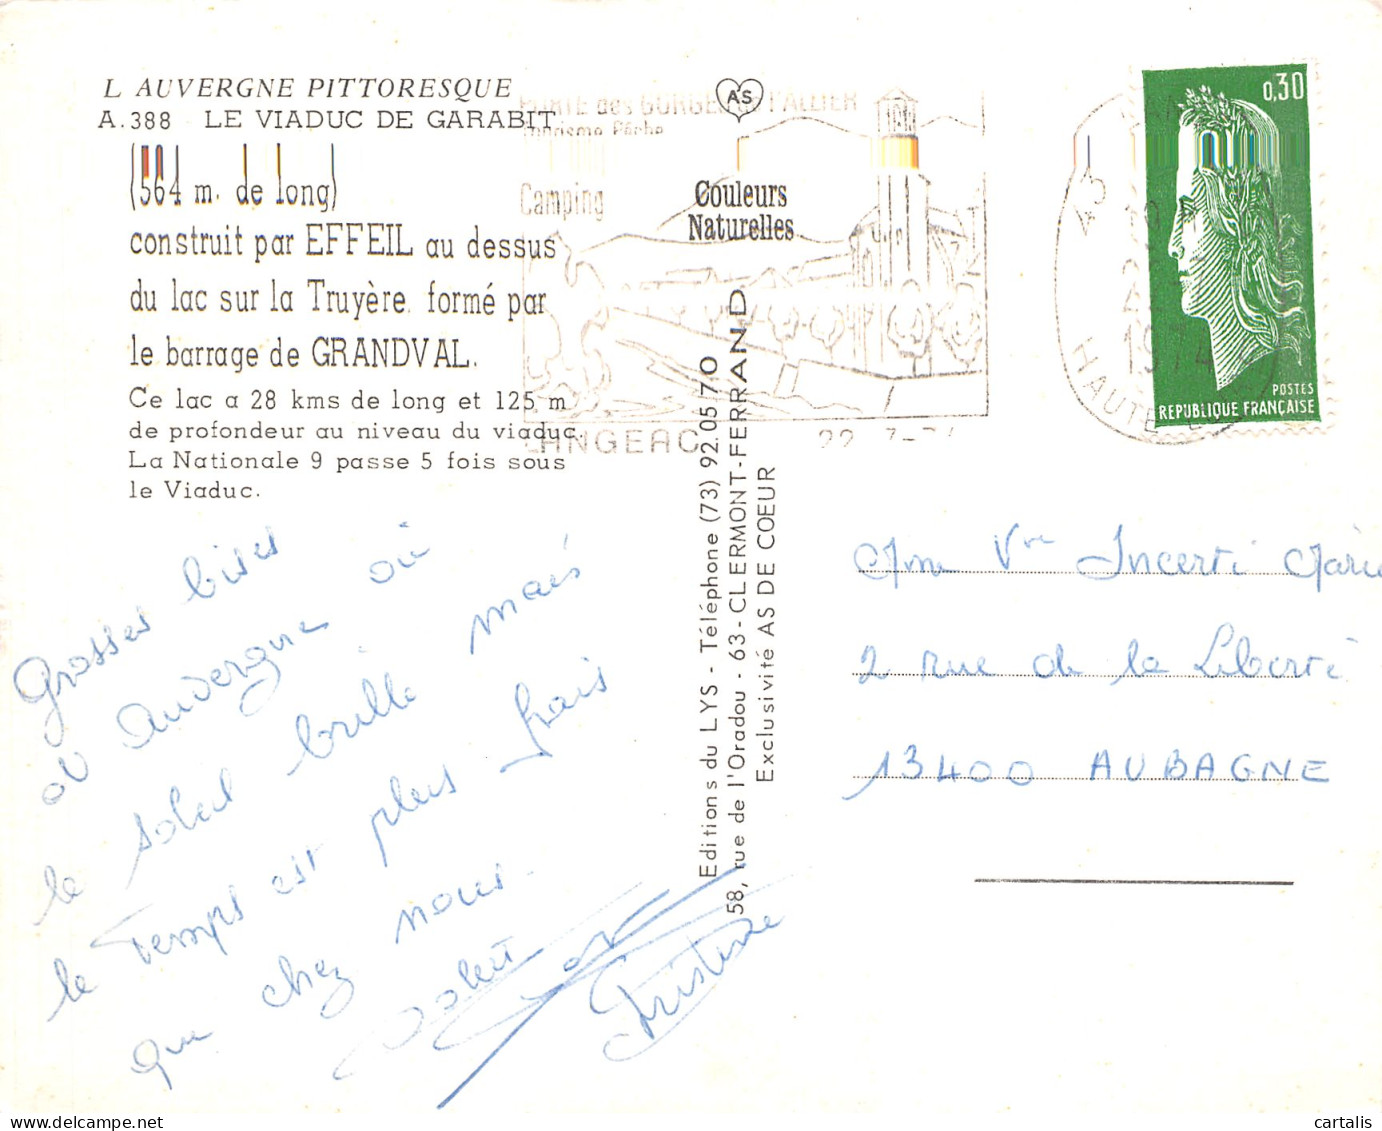 L AUVERGNE PITTORESQUE
A.388 LE VIADUC DE GARABIT
(564 m. de long)
construit par EFFEIL au dessus
du lac sur la Truyère. formé par
le barrage de GRANDVAL.
Ce lac a 28 kms de long et 125 m
de profondeur au niveau du viaduc.
La Nationale 9 passe 5 fois sous
le Viaduc.
AS
Couleurs
Naturelles
PORTE des GORGES de l'ALLIER
Tourisme Pêche
Camping
LANGEAC
0,30
POSTES
REPUBLIQUE FRANÇAISE
43
1974
HAUTE
Editions du LYS - Téléphone (73) 92.05.70
58, rue de l'Oradou - 63 - CLERMONT-FERRAND
Exclusivité AS DE COEUR
Grosses bises
d'Auvergne où
le soleil brille mais
le temps est plus frais
que chez nous.
Christine
Mme Vve Incerti Marie
2 rue de la Liberté
13400 AUBAGNE
cartalis